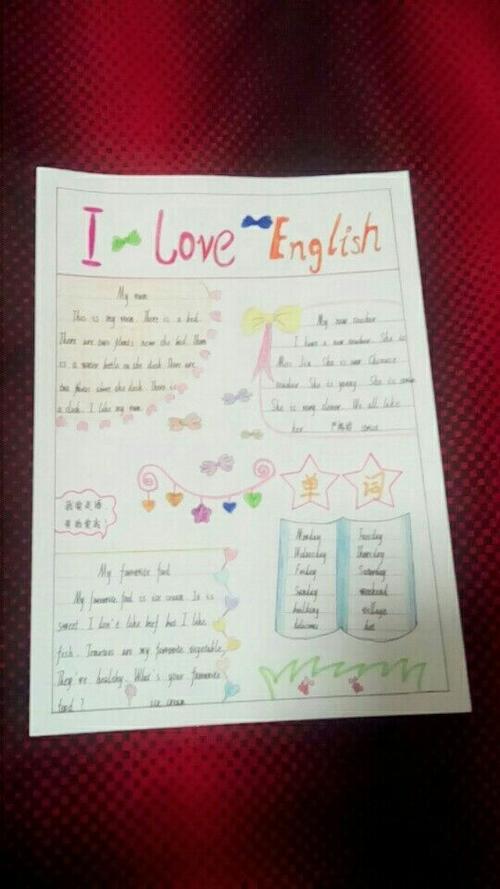 I Love English
My room
This is my room. There is a bed.
There are two plants near the bed. There
is a water bottle on the desk. There are
two photos above the desk. There is
a clock. I like my room.
My new teacher
I have a new teacher. She is
Miss Jin. She is our Chinese
teacher. She is young. She is
She is very clever. We all like
her
单 词
我爱英语
My favourite food
My favourite food is ice cream. It is
sweet. I don't like beef but I like
fish. Tomatoes are my favourite vegetable.
They're healthy. What's your favourite
food? ice cream
Monday Tuesday
Wednesday Thursday
Friday Saturday
Sunday weekend
building village